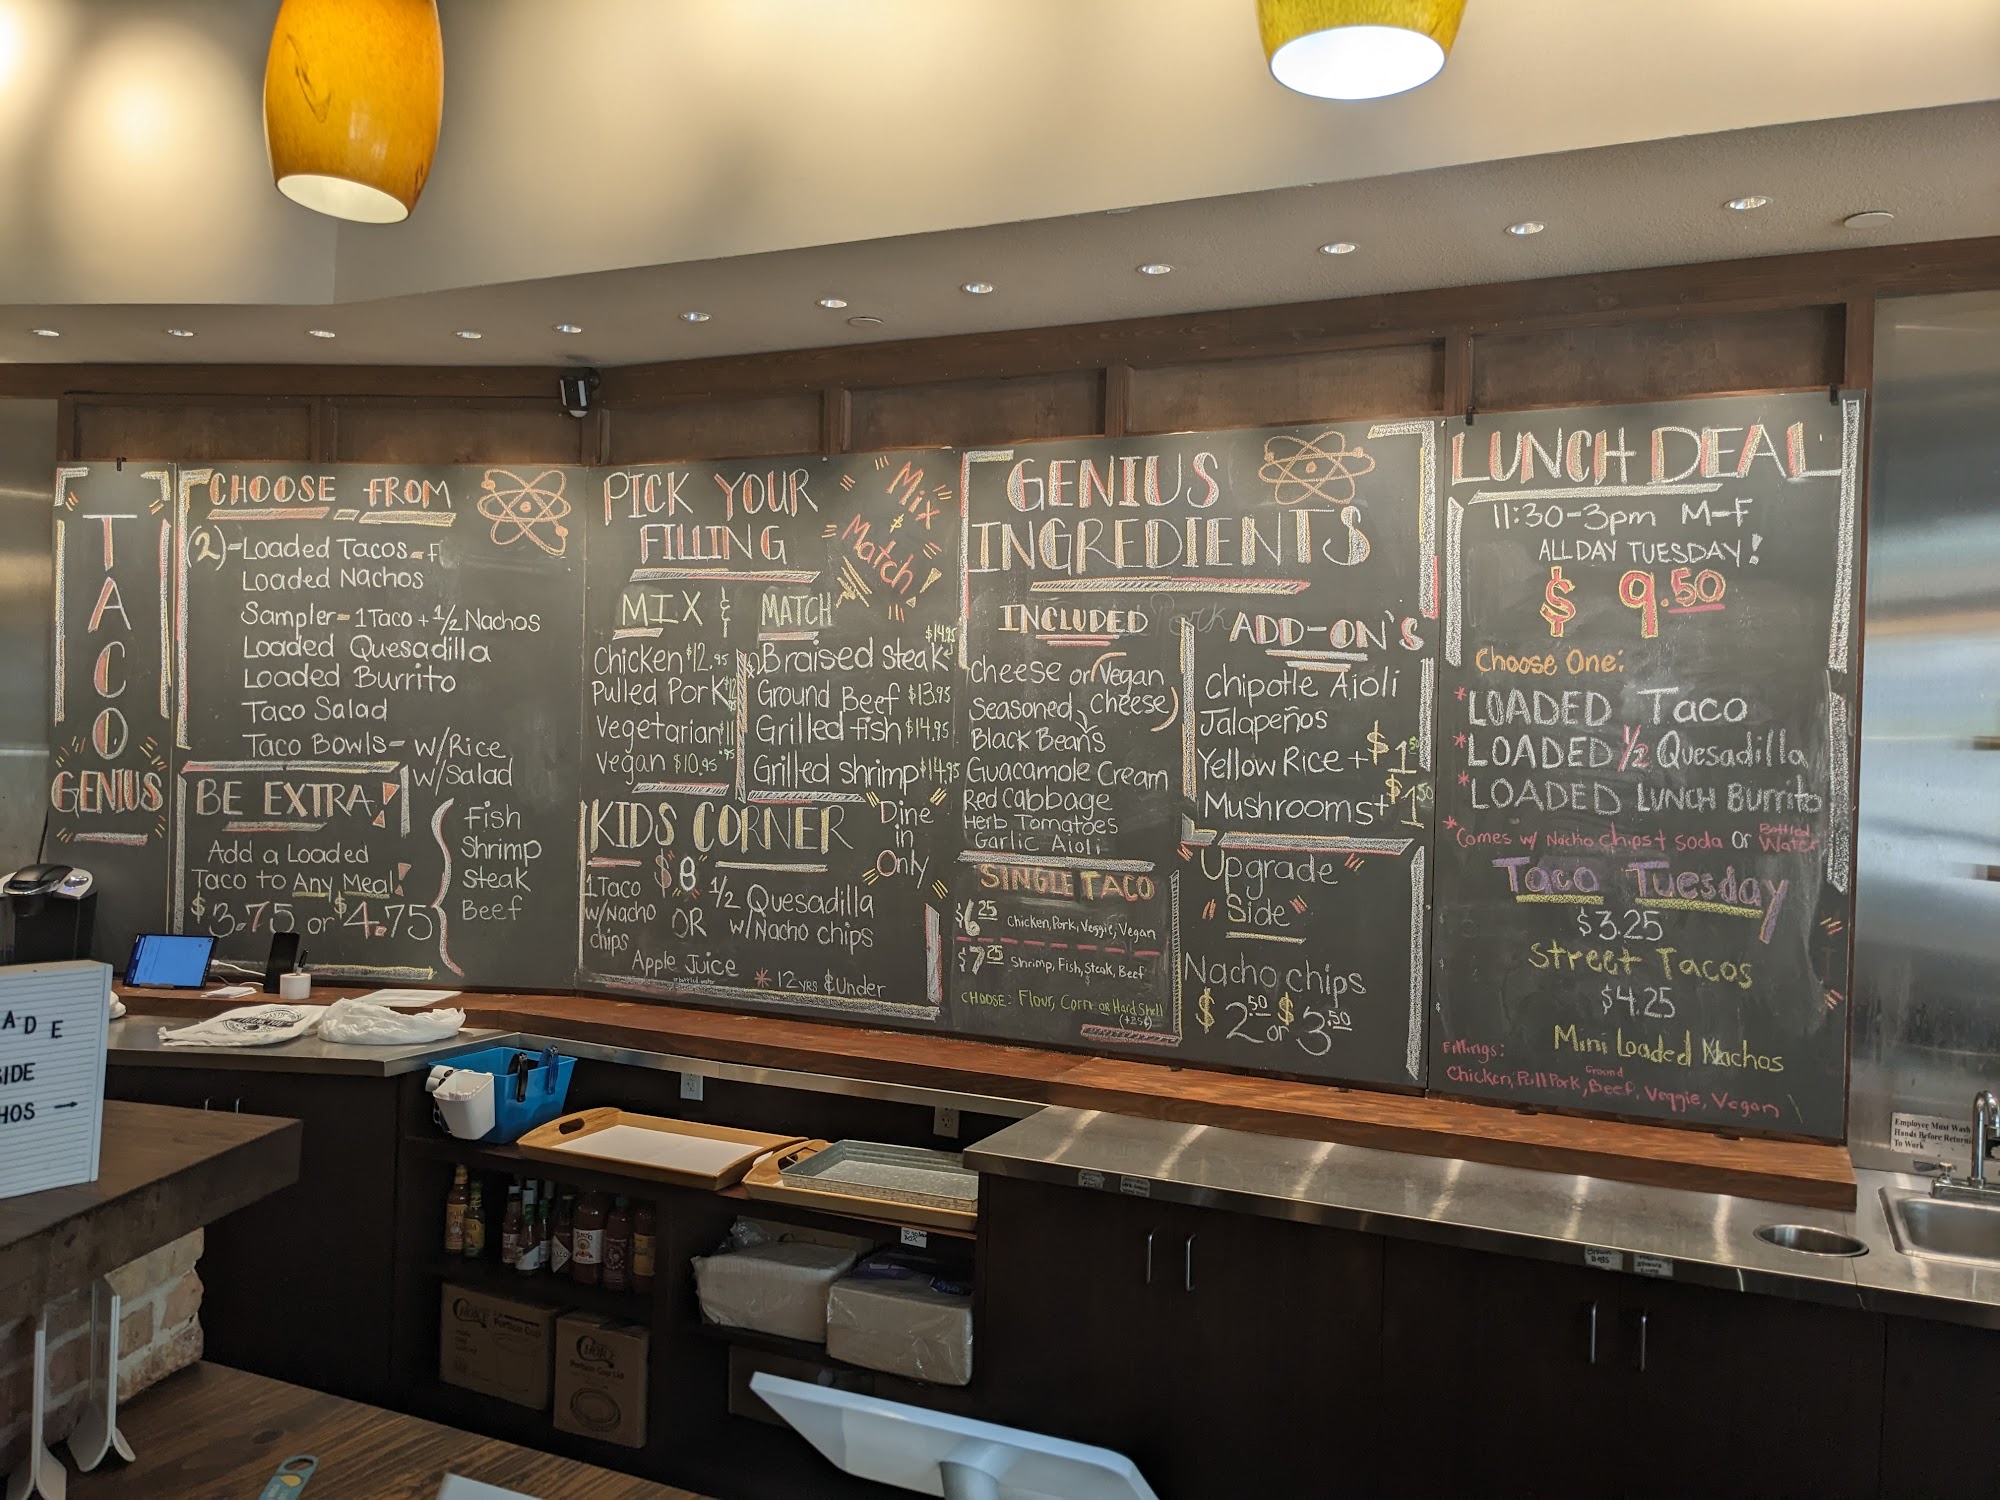 TACO
GENIUS
CHOOSE FROM
(2)-Loaded Tacos=
Loaded Nachos
Sampler=1Taco+1/2 Nachos
Loaded Quesadilla
Loaded Burrito
Taco Salad
Taco Bowls- w/Rice
w/Salad
BE EXTRA!
Add a Loaded
Taco to Any Meal!
$3.75 or $4.75
Fish
Shrimp
Steak
Beef
PICK YOUR
FILLING
Mix
&
Match!
MIX & MATCH
Chicken $12.95
Pulled Pork
Vegetarian
Vegan $10.95
$14.95
Braised Steak
Ground Beef $13.95
Grilled fish $14.95
Grilled shrimp $14.95
KIDS CORNER
$8
Dine
in
Only
1 Taco
w/Nacho
chips
OR
1/2 Quesadilla
w/Nacho chips
Apple Juice
* 12 YRS & Under
GENIUS
INGREDIENTS
INCLUDED
Cheese or (Vegan
Cheese)
Seasoned
Black Beans
Guacamole Cream
Red Cabbage
Herb Tomatoes
Garlic Aioli
Pork
ADD-ON'S
Chipotle Aioli
Jalapeños
Yellow Rice + $1.50
Mushrooms + $1.50
SINGLE TACO
$6.25 Chicken, Pork, Veggie, Vegan
$7.25 Shrimp, Fish, Steak, Beef
CHOOSE: Flour, Corn or Hard Shell
(+25¢)
Upgrade
"Side"
Nacho chips
$2.50 or $3.50
LUNCH DEAL
11:30-3pm M-F
ALL DAY TUESDAY!
$9.50
Choose One:
*LOADED Taco
*LOADED 1/2 Quesadilla
*LOADED LUNCH Burrito
*Comes w/ Nacho Chips + Soda Or Bottled Water
Taco Tuesday
$3.25
Street Tacos
$4.25
Mini Loaded Nachos
Fillings:
Chicken, Pull Pork, Ground Beef, Veggie, Vegan
ADE
SIDE
HOS →
Employee Must Wash
Hands Before Returni
To Work
CHOICE
Portion Cup
CHOICE
Portion Cup Lid